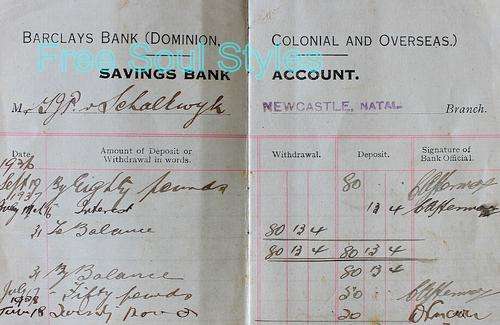 BARCLAYS BANK (DOMINION, COLONIAL AND OVERSEAS.)
Free Soul Styles
SAVINGS BANK ACCOUNT.
M. v Schalkwyk NEWCASTLE, NATAL Branch.
Date. Amount of Deposit or Withdrawal in words. Withdrawal. Deposit. Signature of Bank Official.
1936
Sept 19 By Eighty pounds 80
1937
Interest 13 4
31 To Balance 80 13 4
80 13 4 80 13 4
31 By Balance 80 13 4
July 17 Fifty pounds 50
1938
Twenty 20